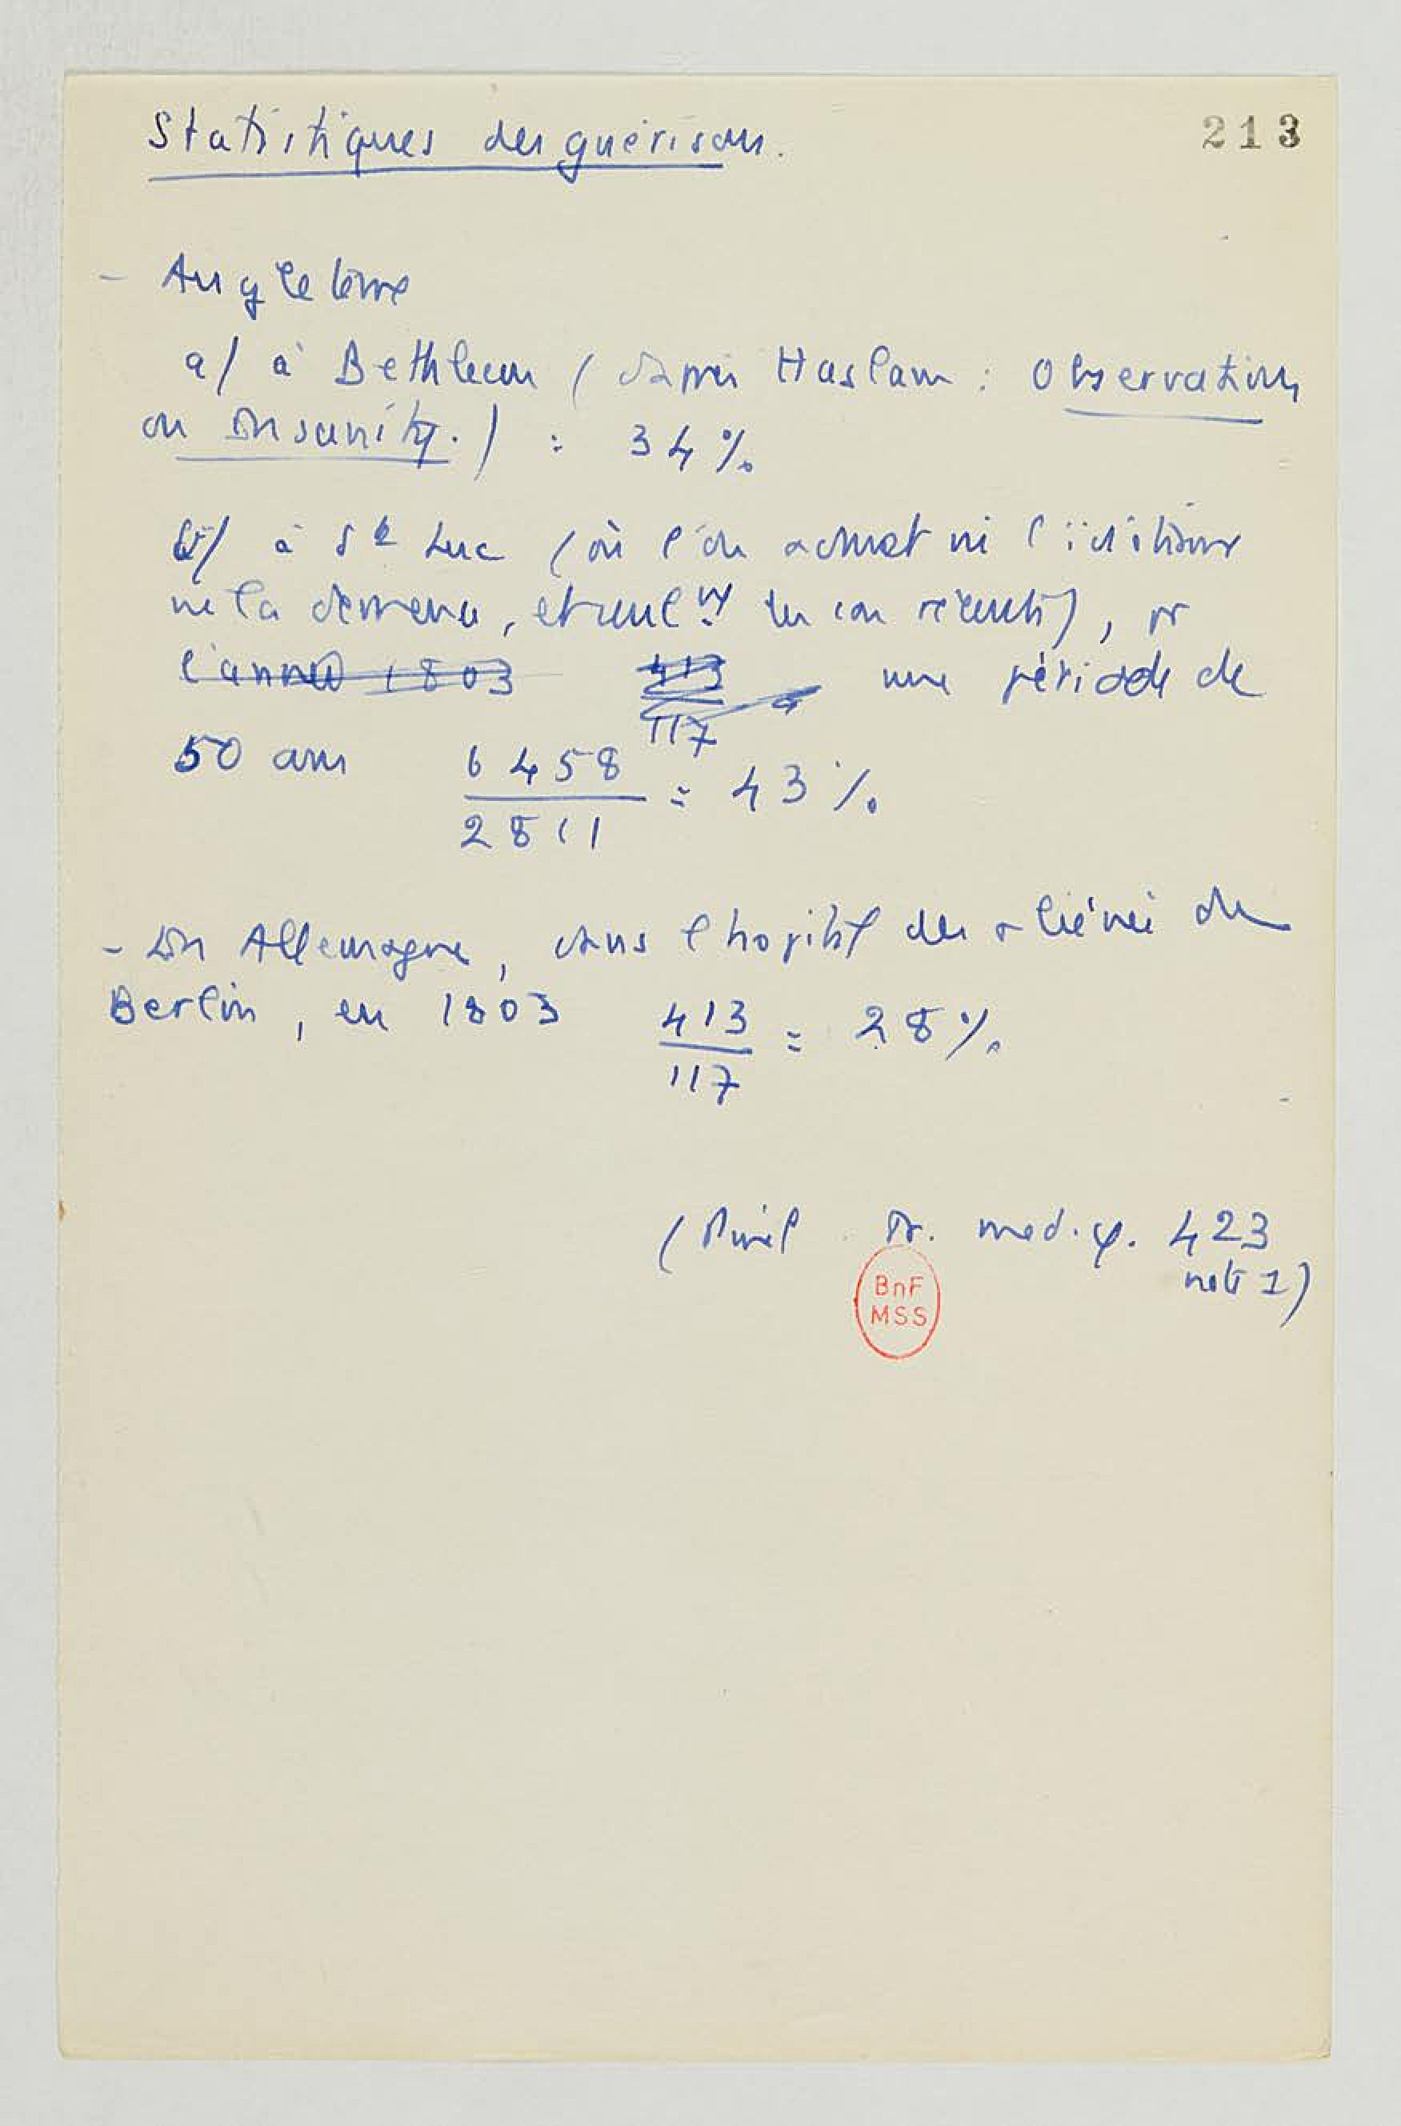 213
Statistiques des guérisons.
- Angleterre
a/ à Bethleem (d'après Haslam : Observations
on Insanity.) : 34 %
b/ à St Luc (où l'on admet ni l'idiotisme
ni la démence, et seulmt les cas récents), pr
l'année 1803 413 une période de
117
50 ans 6458 = 43 %
2811
- En Allemagne, dans l'hopital des aliénés de
Berlin, en 1803 413 = 28 %
117
(Pinel Tr. med. φ. 423
note 1)
BnF
MSS